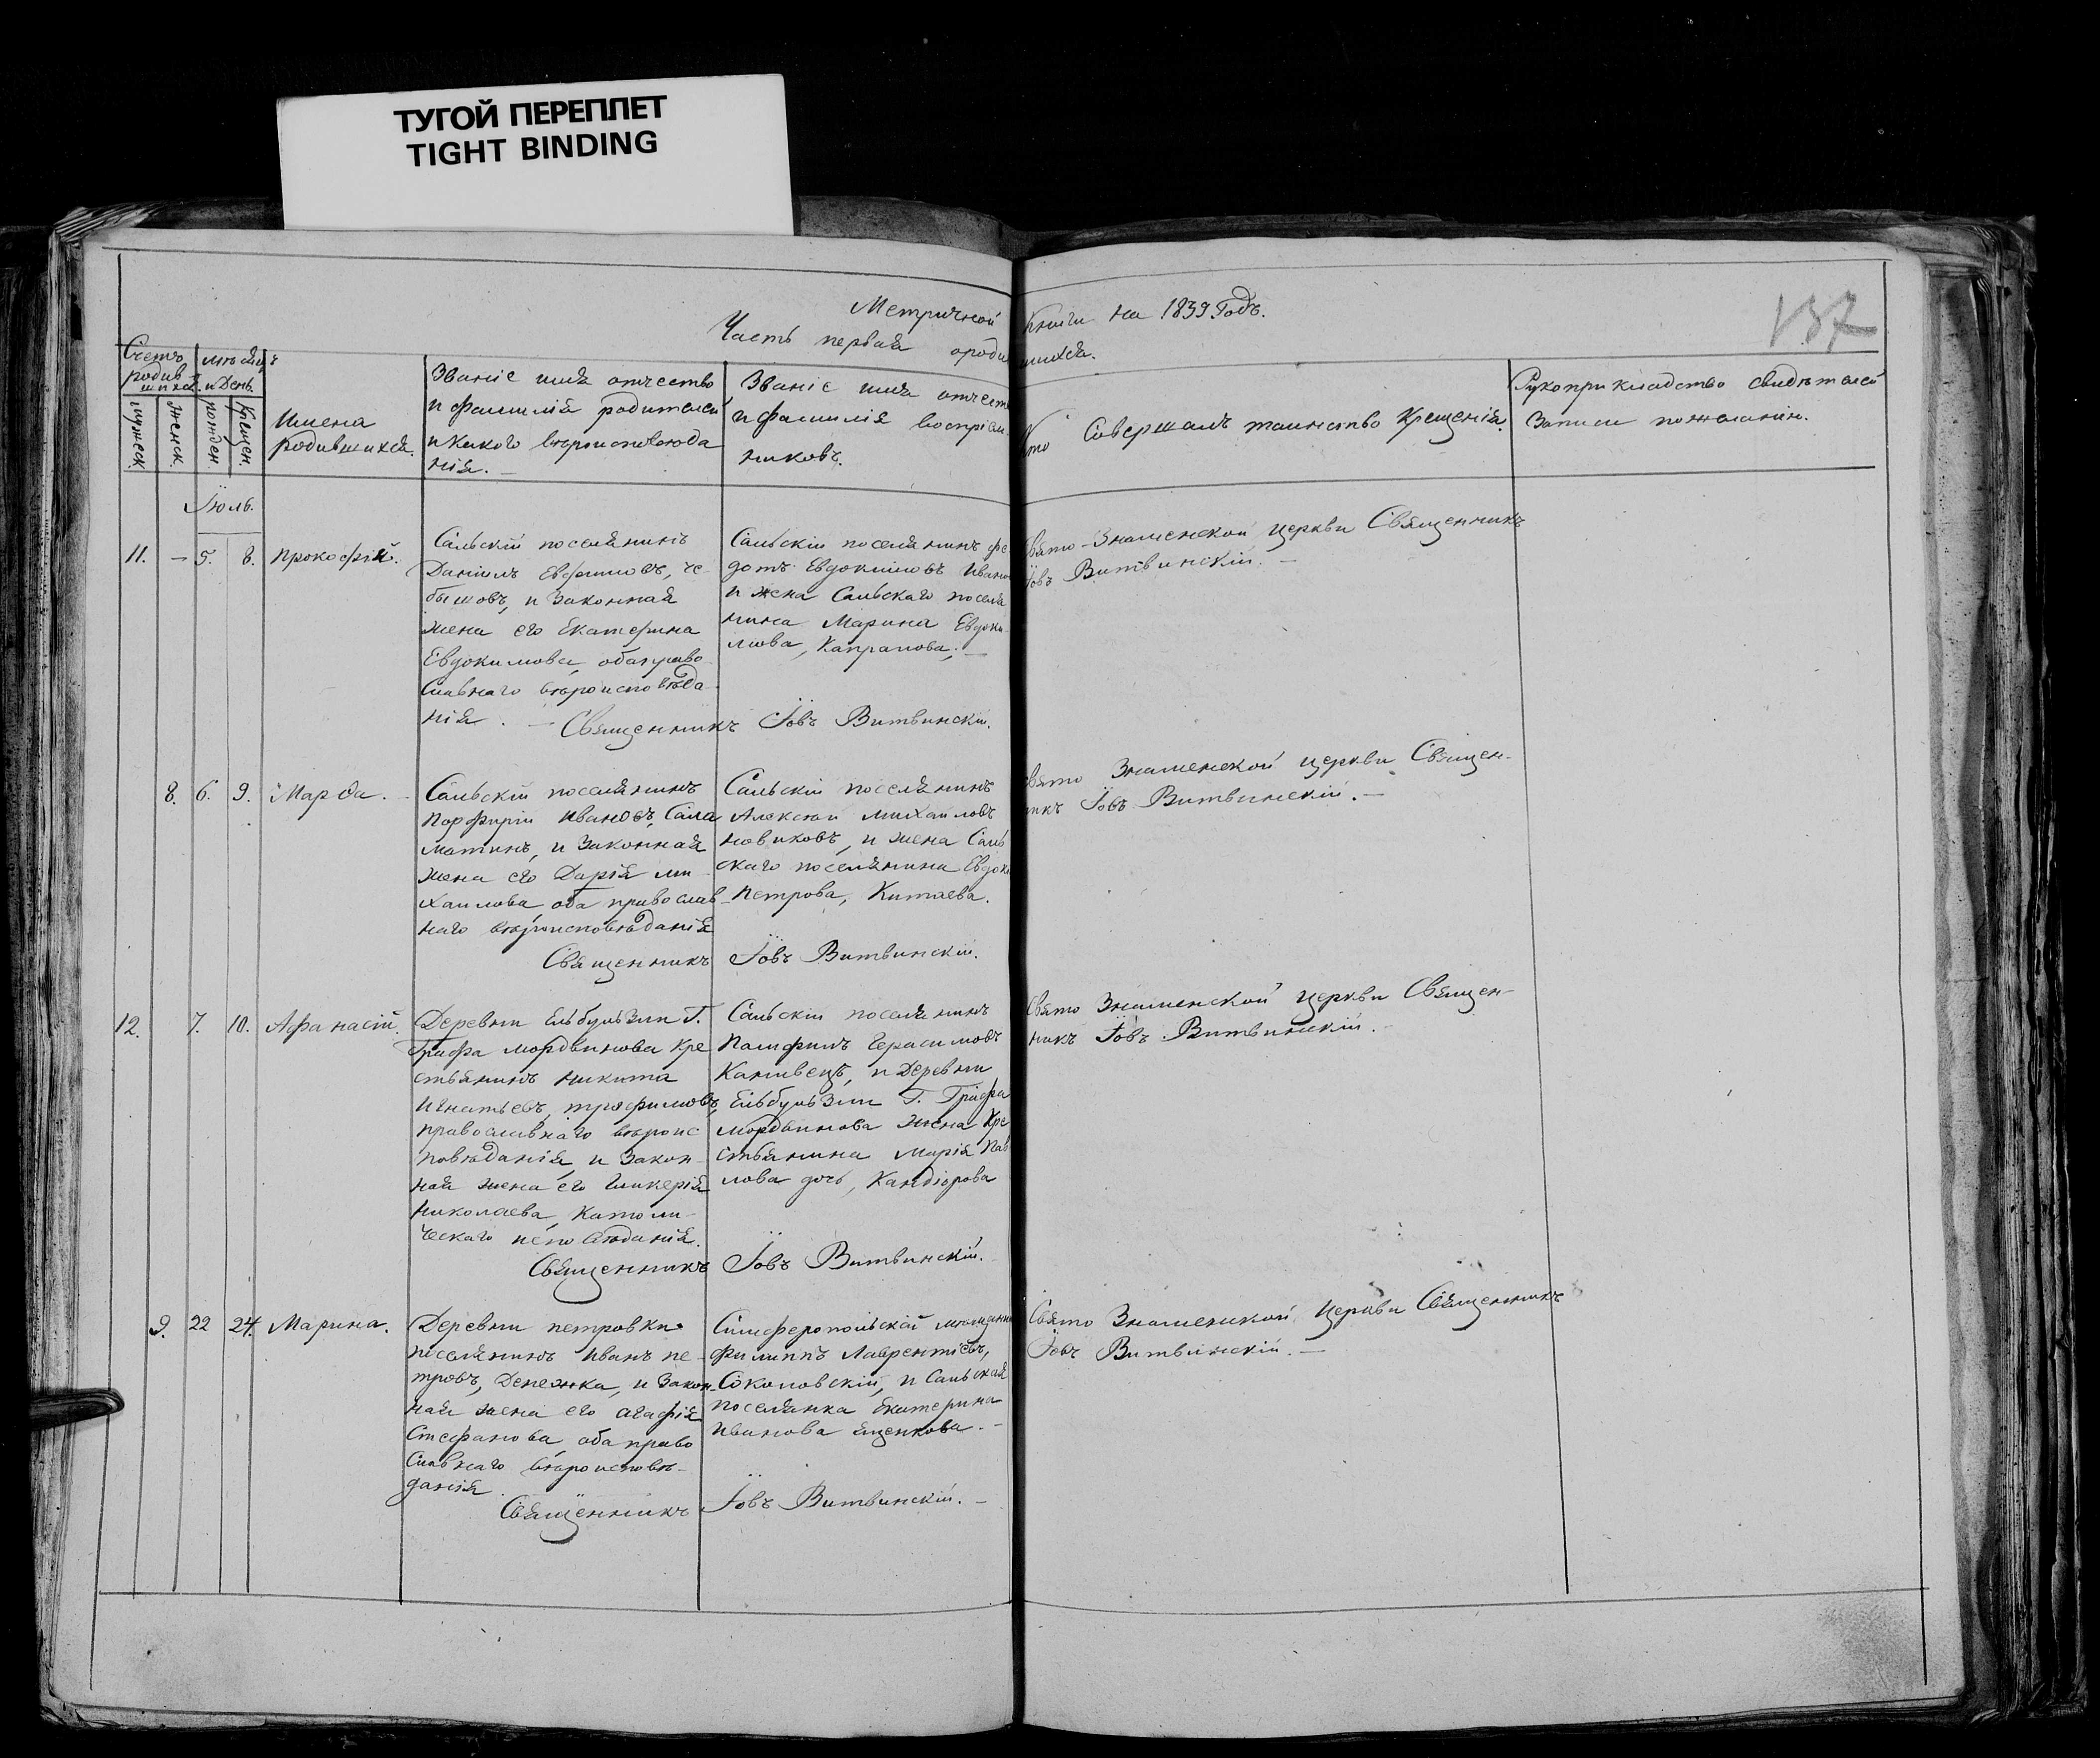 ТУГОЙ ПЕРЕПЛЕТ
TIGHT BINDING
Метричной Книги на 1839 Годъ.
Часть первая ороди вшихся.
137
Счетъ родившихся.
мужеск.
женск.
Месяцъ и День.
рожден.
Крещен.
Имена
родившихся.
Званіе имя отчество
и фамилія родителей
и Какого вѣроисповѣда
нія. —
Званіе имя отчест
и фамилія воспріем
никовъ.
Кто Совершалъ таинство Крещенія.
Рукоприкладство свидѣтелей
Записи пожеланію.
Іюль.
11. — 5. 8. Прокофій.
Сальскій поселянинъ
Даніилъ Евфимовъ, Че-
бышовъ, и Законная
жена его Екатерина
Евдокимова, оба право
славнаго вѣроисповѣда
нія. —
Сальскій поселянинъ Фе
дотъ Евдокимовъ Ивано
и жена Сальскаго поселя
нина Марина Евдоки
мова, Капранова; —
Священникъ Іовъ Витвинскій.
Свято-Знаменской Церкви Священникъ
Іовъ Витвинскій. —
8. 6. 9. Марѳа.
Сальскій поселянинъ
Порфирій Ивановъ, Сала
матинъ, и Законная
жена его Дарія Ми
хаилова оба православ
наго вѣроисповѣданія
Сальскій поселянинъ
Алексѣй Михаиловъ
Новиковъ, и жена Саль
скаго поселянина Евдок
Петрова, Китаева.
Священникъ Іовъ Витвинскій.
Свято Знаменской Церкви Священ-
никъ Іовъ Витвинскій. —
12. 7. 10. Афанасій.
Деревни Ельбузлы Г.
Графа Мордвинова Кре
стьянинъ Никита
Игнатьевъ, Трофимовъ,
православнаго вѣроис
повѣданія, и Закон-
ная жена его Гликерія
Николаева, Католи-
ческаго исповѣданія.
Сальскій поселянинъ
Памфилъ Герасимовъ
Канивецъ, и Деревни
Ельбузлы Г. Графа
Мордвинова жена Кре
стьянина Марія Пав
лова дочь, Кандіорова
Священникъ Іовъ Витвинскій.
Свято Знаменской Церкви Священ-
никъ Іовъ Витвинскій. —
9. 22 24. Марина.
Деревни Петровки
поселянинъ Иванъ Пе-
тровъ, Денежка, и Закон-
ная жена его Агафія
Стефанова, оба право
славнаго вѣроисповѣ-
данія.
Симферопольскій мѣщанин
Филиппъ Лаврентіевъ,
Соколовскій, и Сальская
поселянка Екатерина
Иванова Яценкова. —
Священникъ Іовъ Витвинскій. —
Свято Знаменской Церкви Священникъ
Іовъ Витвинскій. —